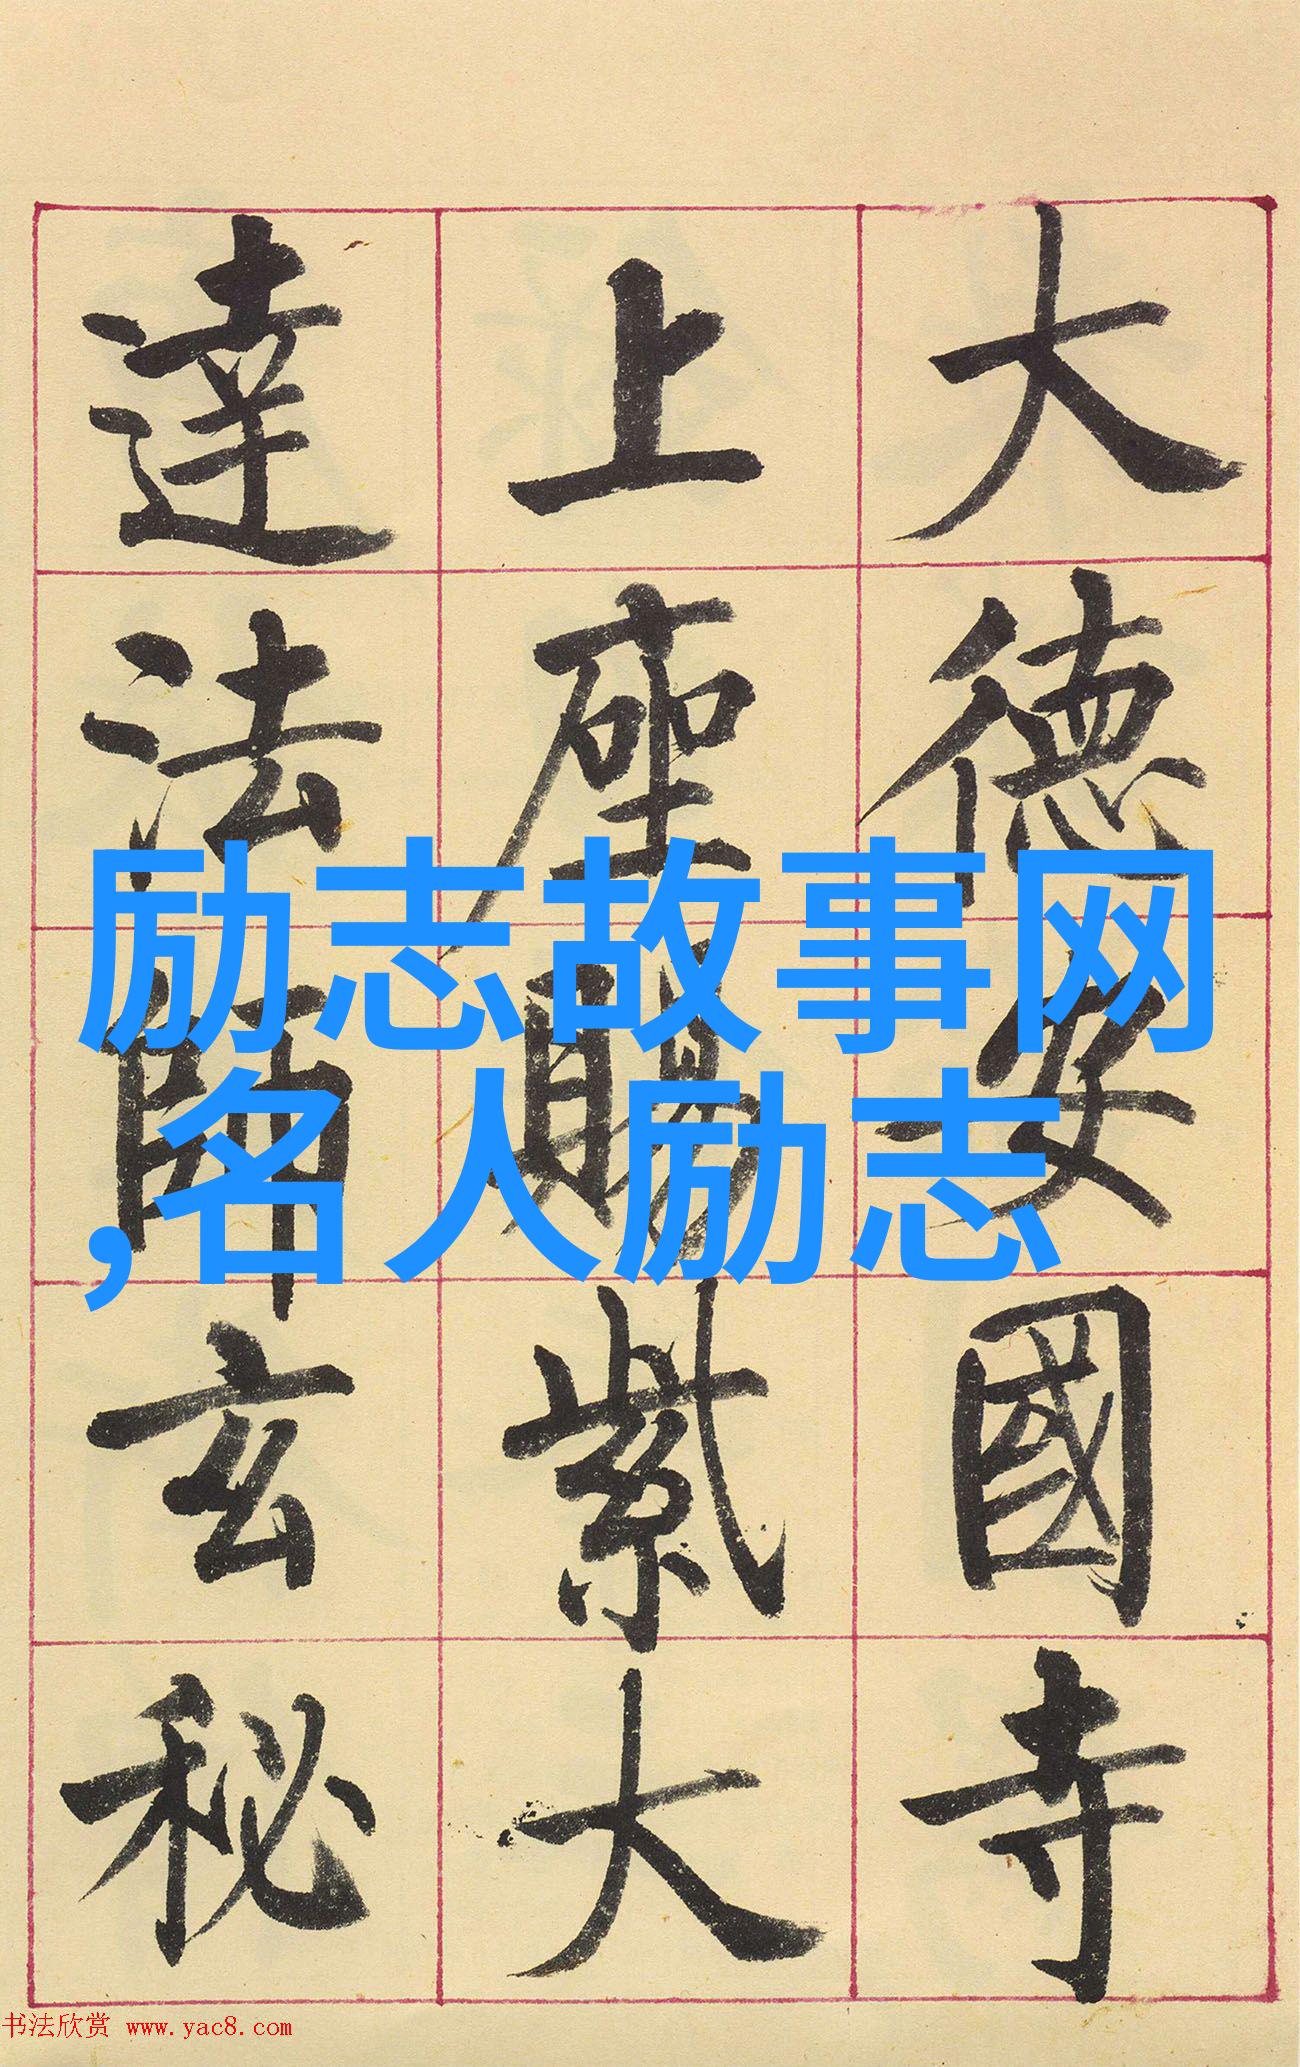 大德安國寺
上座賜紫大
達法師玄秘
励志故事网
,名人励志
书法欣赏 www.yac8.com